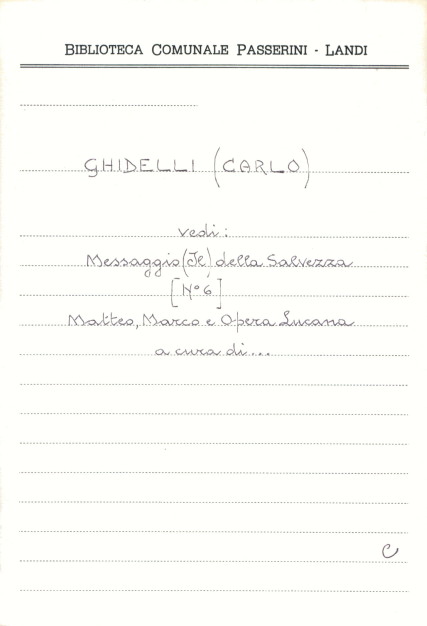 BIBLIOTECA COMUNALE PASSERINI - LANDI
GHIDELLI (CARLO)
vedi:
Messaggio (Il) della Salvezza
[N° 6]
Matteo, Marco e Opera Lucana
a cura di...
C